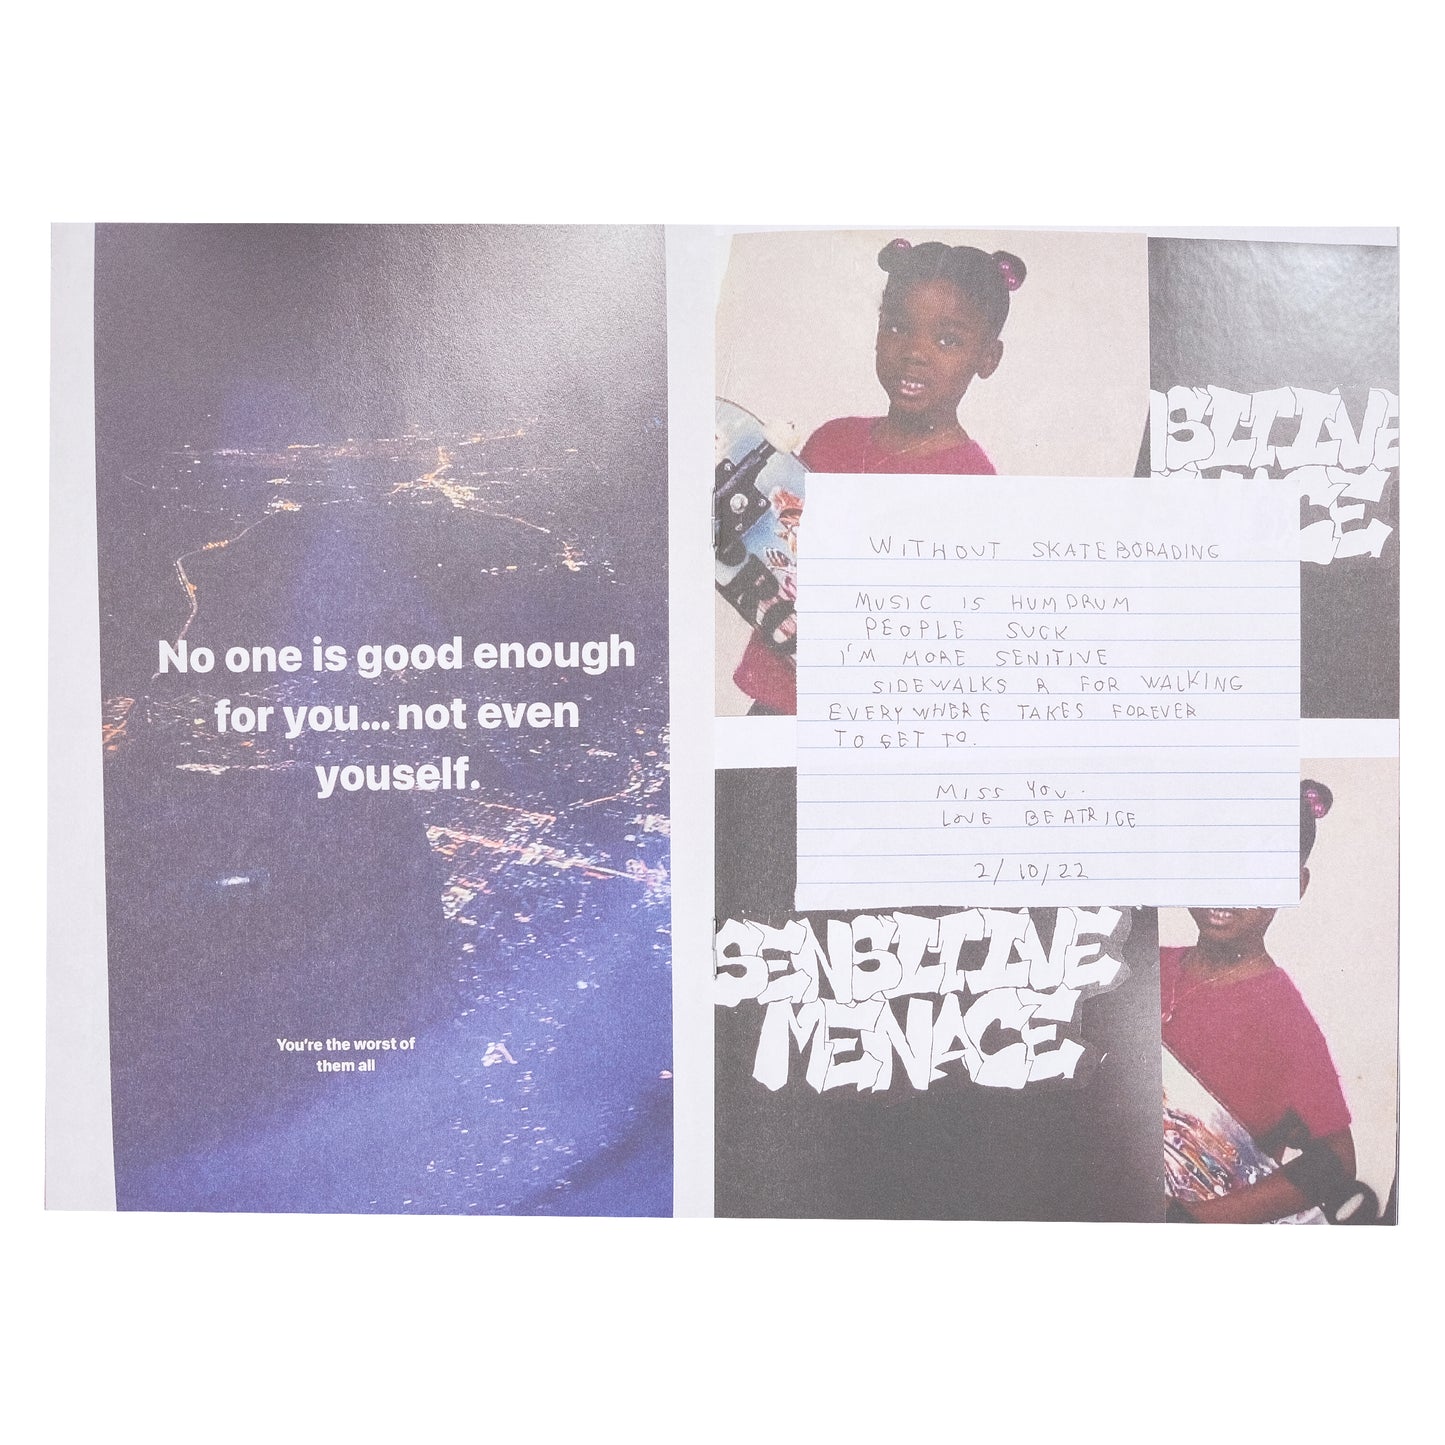 No one is good enough
for you... not even
youself.
You're the worst of
them all
SITIVE
ACE
WITHOUT SKATEBORADING
MUSIC IS HUMDRUM
PEOPLE SUCK
I'M MORE SENITIVE
SIDEWALKS R FOR WALKING
EVERYWHERE TAKES FOREVER
TO GET TO.
MISS YOU.
LOVE BEATRICE
2/10/22
SENSITIVE
MENACE